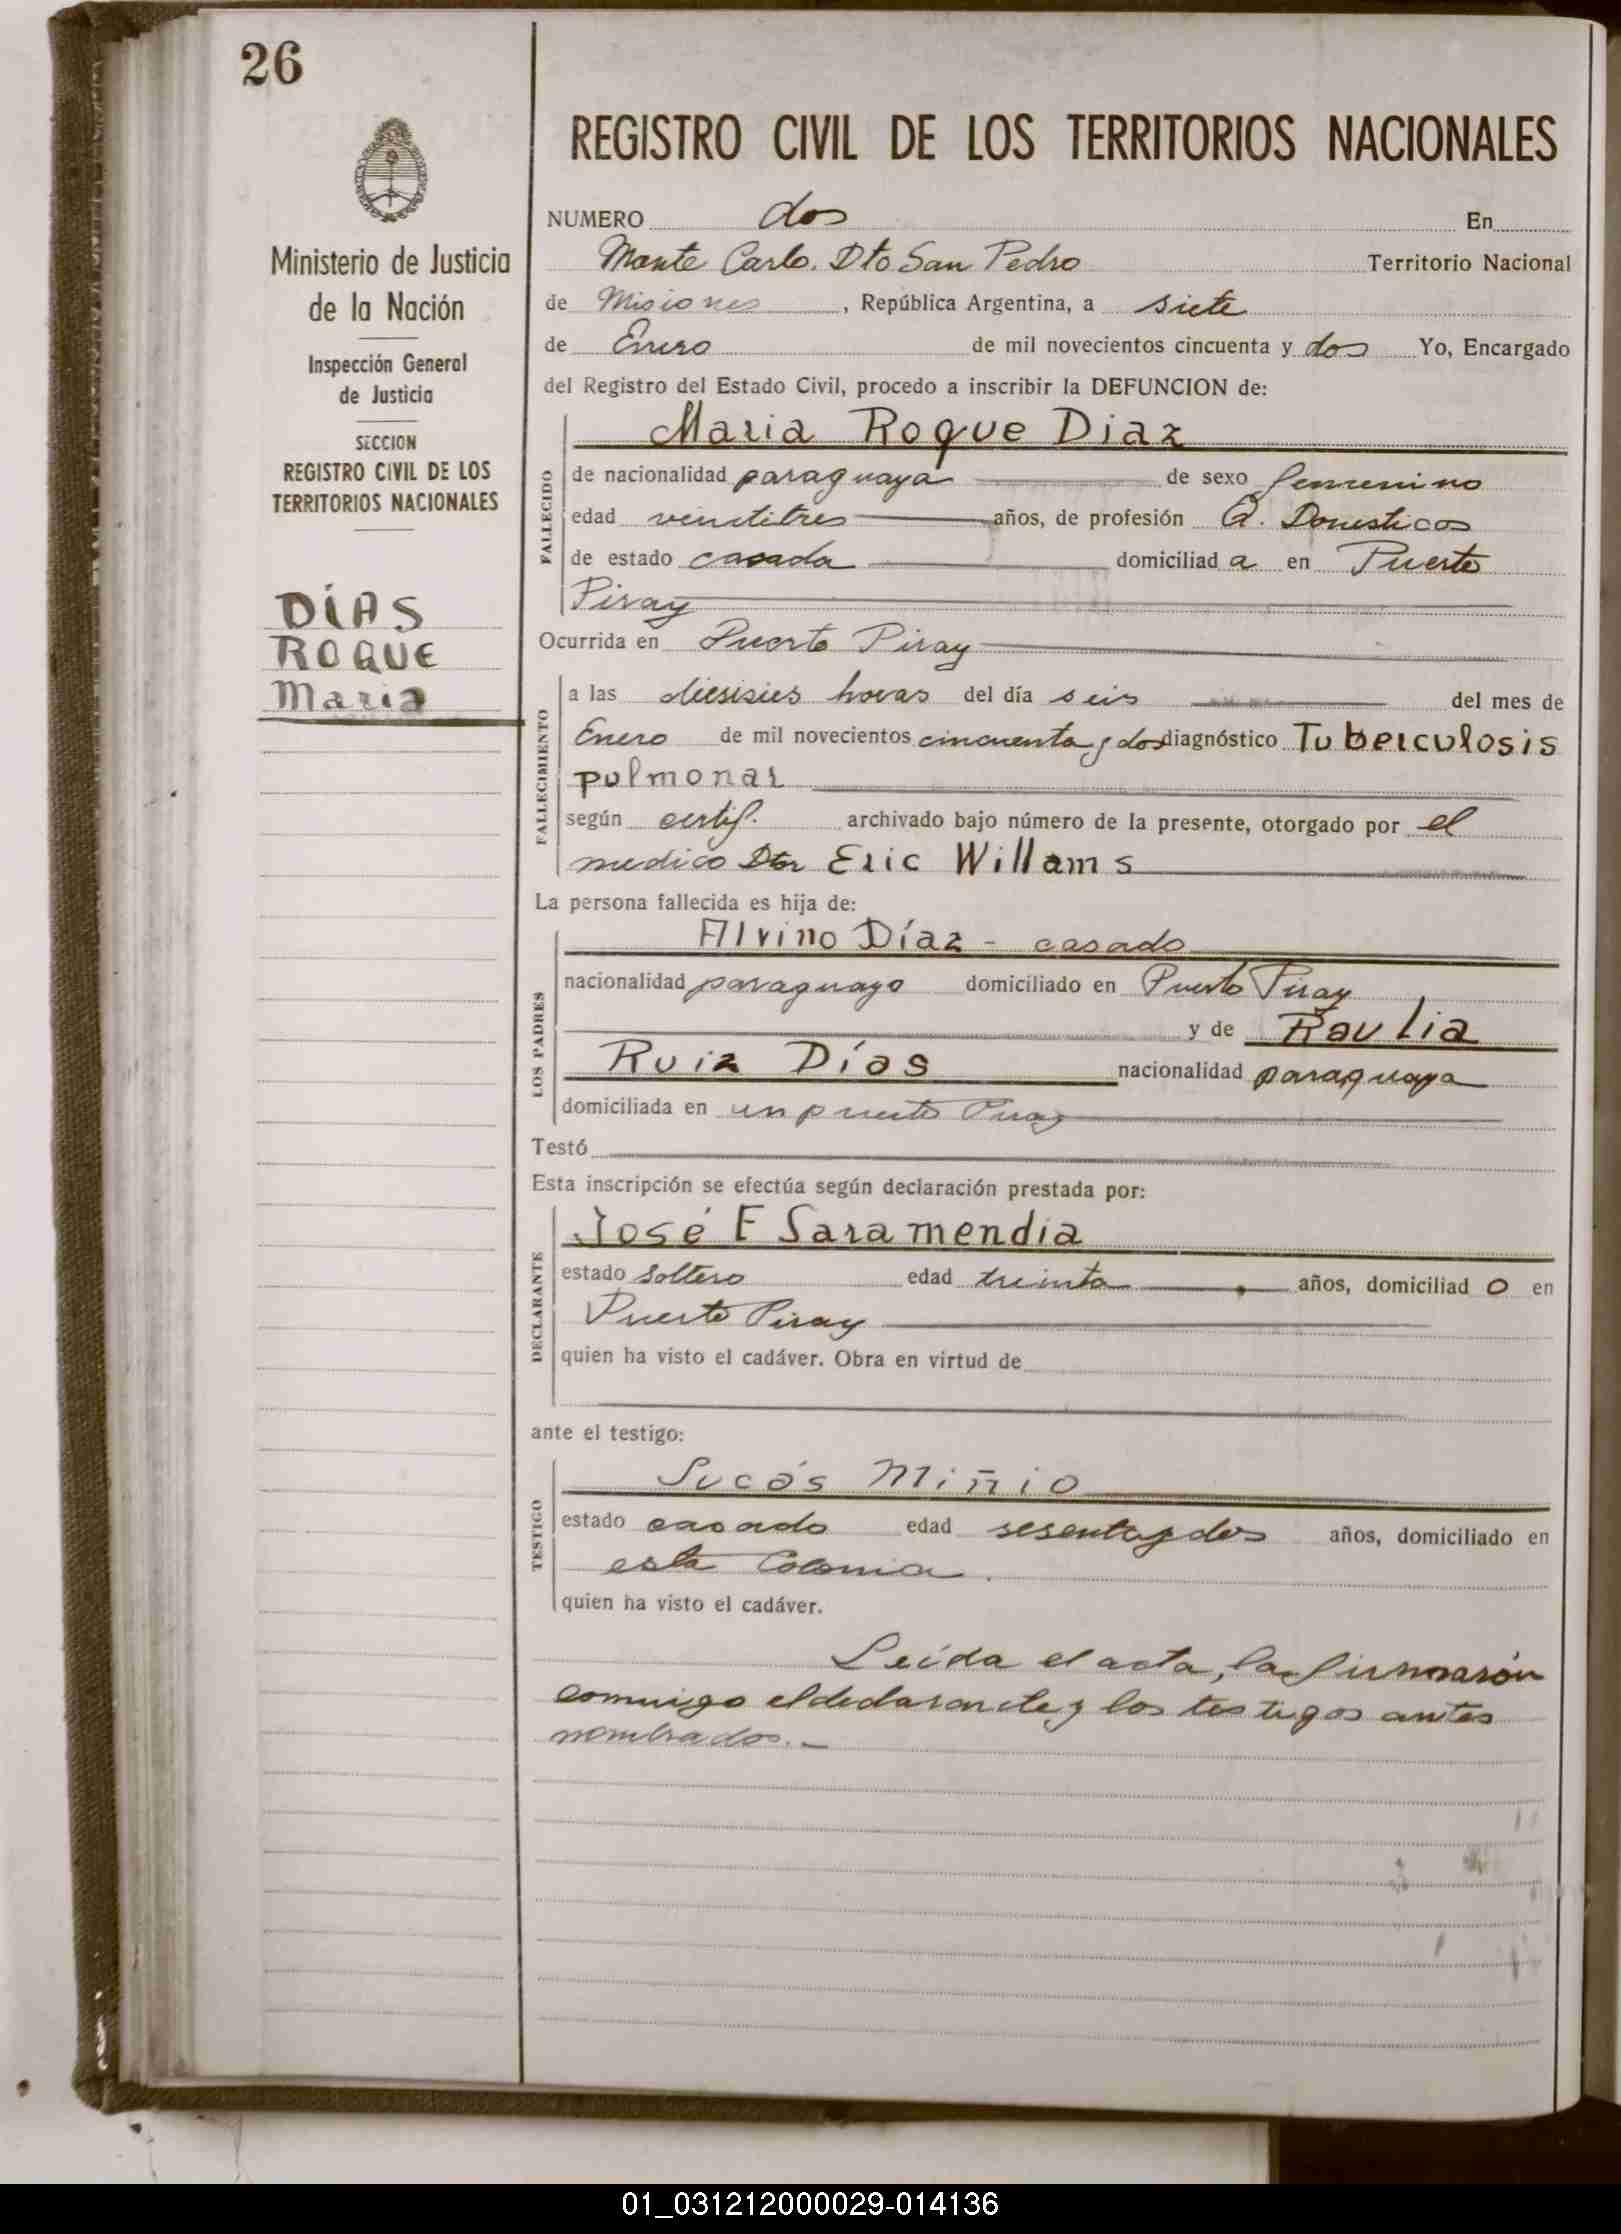 26
Ministerio de Justicia
de la Nación
Inspección General
de Justicia
SECCION
REGISTRO CIVIL DE LOS
TERRITORIOS NACIONALES
DÍAS
ROQUE
Maria
REGISTRO CIVIL DE LOS TERRITORIOS NACIONALES
NUMERO dos En
Monte Carlo. Dto San Pedro Territorio Nacional
de Misiones, República Argentina, a siete
de Enero de mil novecientos cincuenta y dos Yo, Encargado
del Registro del Estado Civil, procedo a inscribir la DEFUNCION de:
Maria Roque Diaz
FALLECIDO
de nacionalidad paraguaya de sexo femenino
edad veintitres años, de profesión Q. Domesticos
de estado casada domiciliad a en Puerto
Piray
Ocurrida en Puerto Piray
FALLECIMIENTO
a las diesisies horas del día seis del mes de
Enero de mil novecientos cincuenta y dos diagnóstico Tuberculosis
pulmonar
según certif. archivado bajo número de la presente, otorgado por el
medico Dtor Eric Willams
La persona fallecida es hija de:
LOS PADRES
Alvino Díaz - casado
nacionalidad paraguayo domiciliado en Puerto Piray
y de Raulia
Ruiz Días nacionalidad paraguaya
domiciliada en en puerto Piray
Testó
Esta inscripción se efectúa según declaración prestada por:
DECLARANTE
José F Saramendia
estado soltero edad treinta años, domiciliad o en
Puerto Piray
quien ha visto el cadáver. Obra en virtud de
ante el testigo:
TESTIGO
Lucás Miñio
estado casado edad sesenta y dos años, domiciliado en
esta Colonia.
quien ha visto el cadáver.
Leída el acta, la firmarón
conmigo el declarante y los testigos antes
nombrados.-
01_031212000029-014136